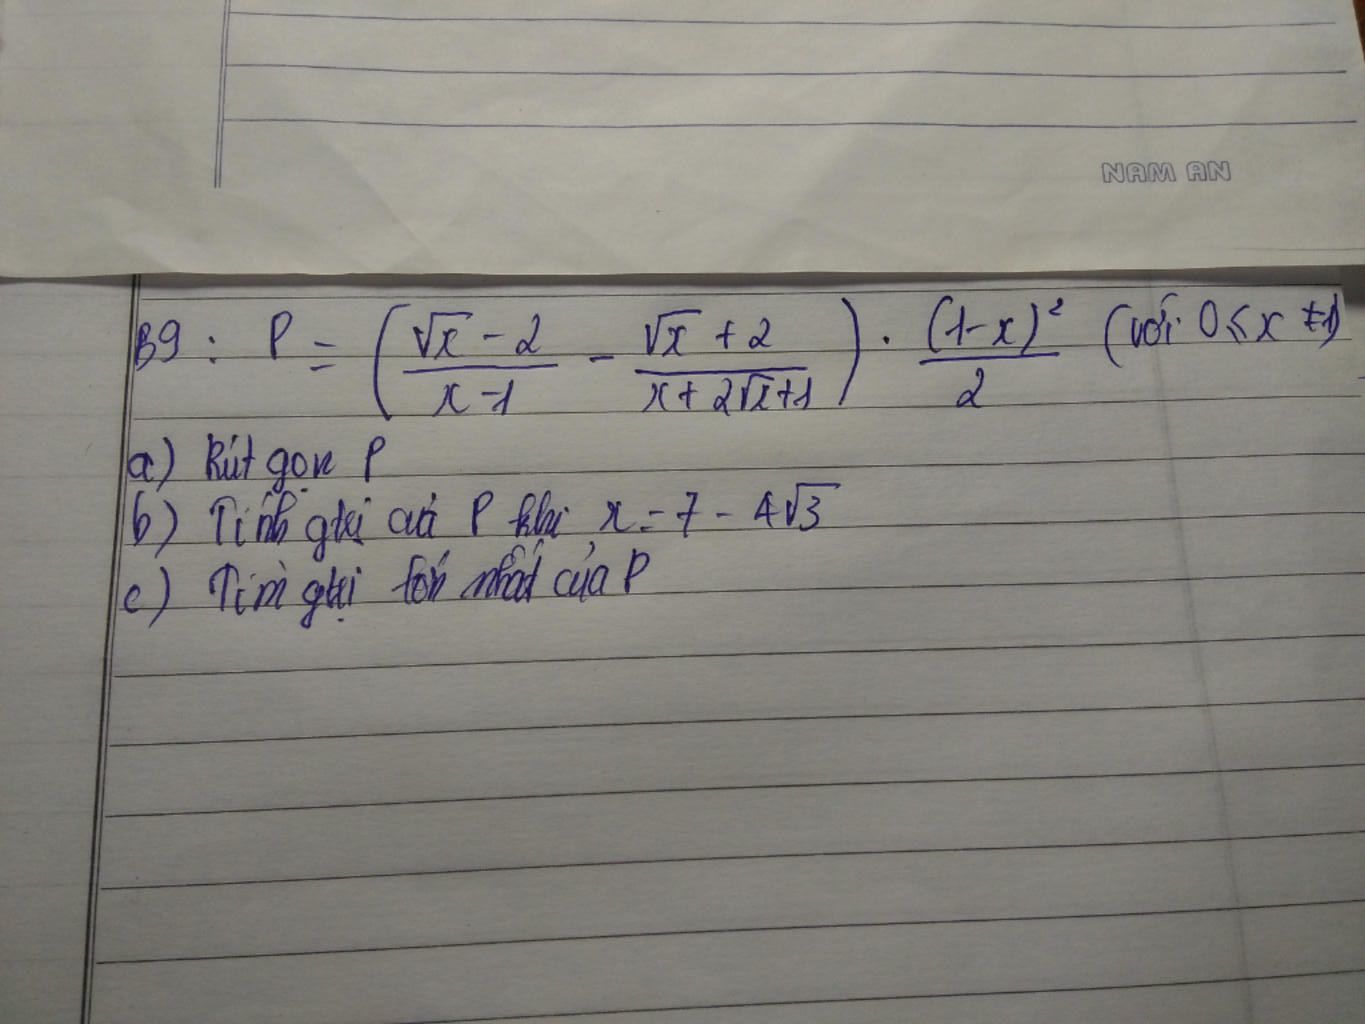 NAM AN
B9 : P = ( (√x - 2)/(x - 1) - (√x + 2)/(x + 2√x + 1) ) . (1-x)²/2 (với 0 ≤ x ≠ 1)
a) Rút gọn P
b) Tính gtri củả P khi x = 7 - 4√3
c) Tìm gtrị lớn nhất của P